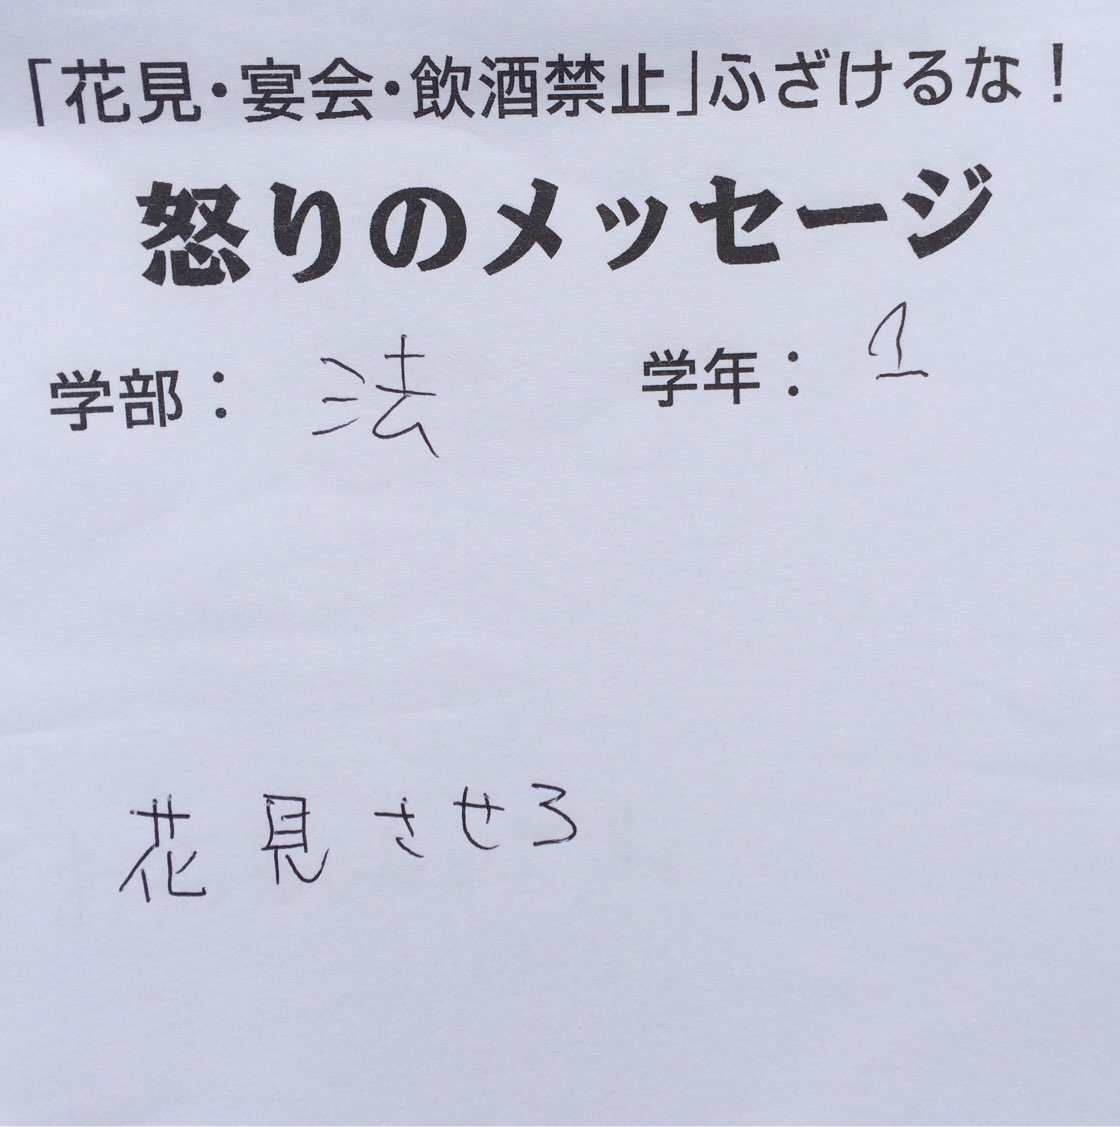 「花見・宴会・飲酒禁止」ふざけるな！
怒りのメッセージ
学部： 法 学年： 1
花見させろ